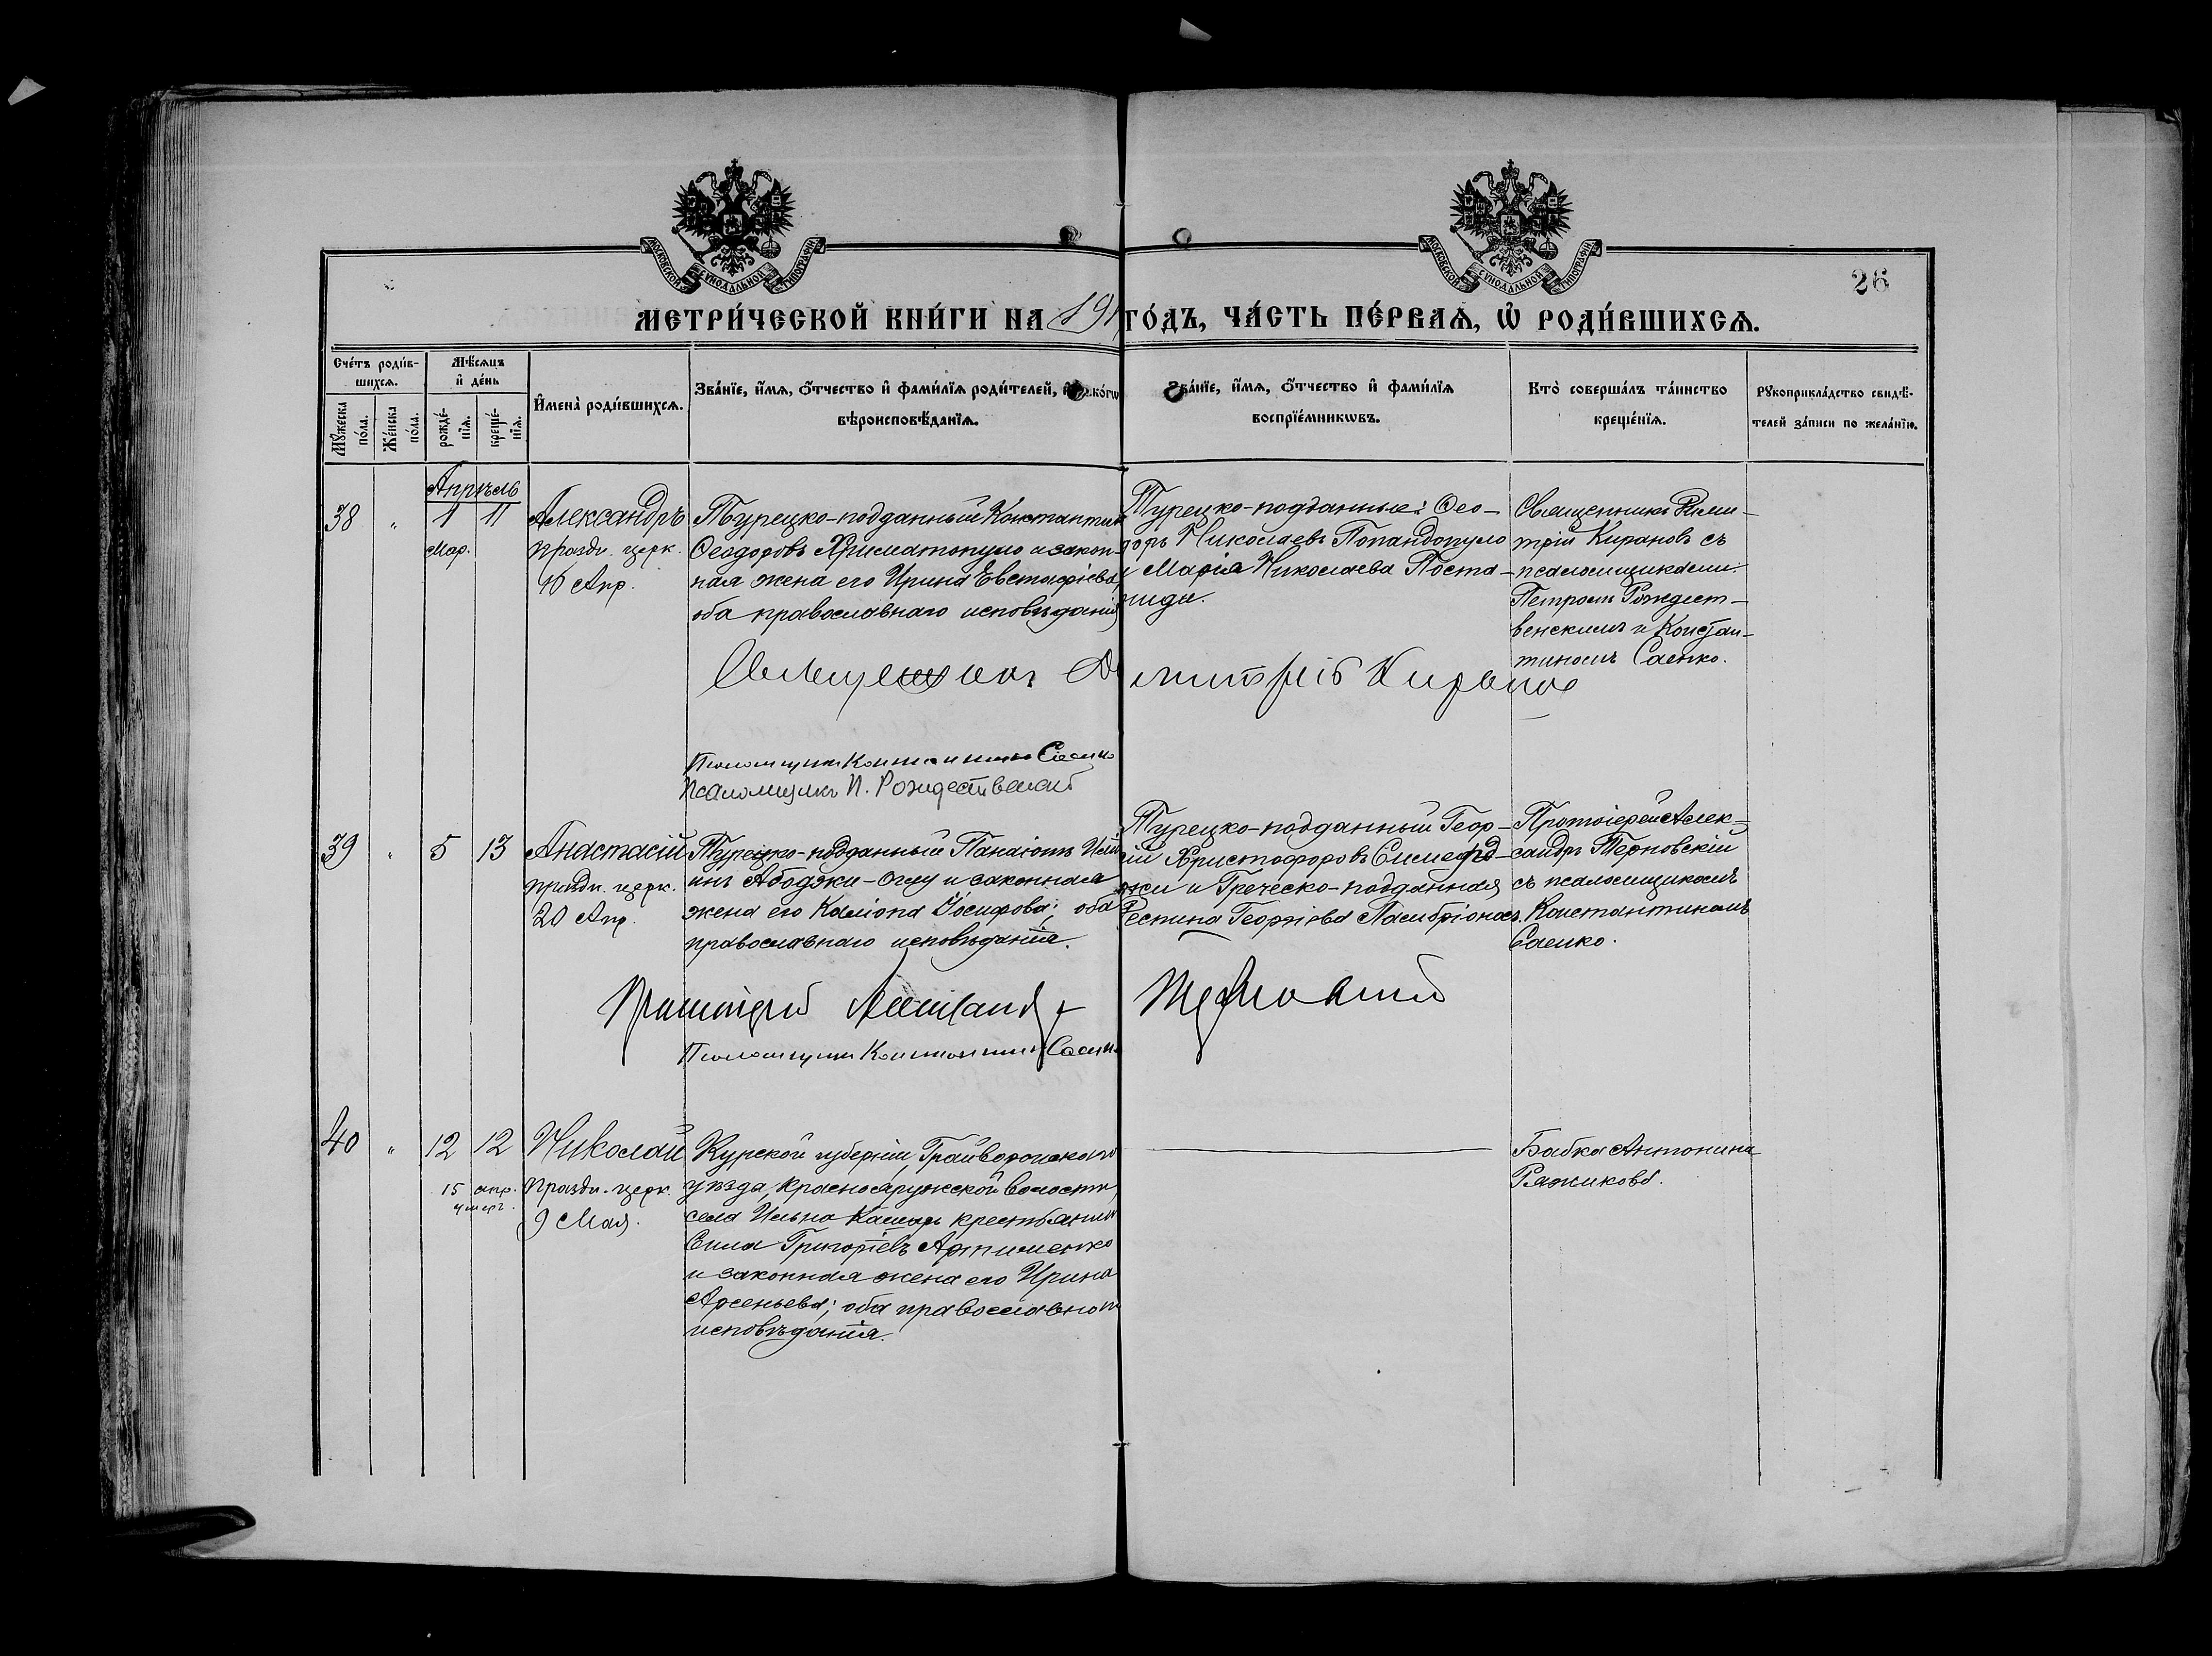 МОСКОВСКОЙ СѴНОДАЛЬНОЙ ТИПОГРАФІИ
МОСКОВСКОЙ СѴНОДАЛЬНОЙ ТИПОГРАФІИ
26
МЕТРИ́ЧЕСКОЙ КНИ́ГИ НА 191 ГО́ДЪ, ЧА́СТЬ ПЕ́РВАѦ, Ѡ҆ РОДИ́ВШИХСѦ.
Сче́тъ роди́в-
шихсѧ.
Мѣ́сѧцъ
и҆ де́нь
Мꙋ́жеска по́ла.
Же́нска по́ла.
рожде́-
нїѧ.
креще́-
нїѧ.
И҆мена̀ роди́вшихсѧ.
Зва́нїе, и҆́мѧ, ѻ҆́тчество и҆ фами́лїѧ роди́телей, и҆ како́гѡ
вѣроисповѣ́данїѧ.
Зва́нїе, и҆́мѧ, ѻ҆́тчество и҆ фами́лїѧ
воспрїе́мникѡвъ.
Кто̀ соверша́лъ та́инство
креще́нїѧ.
Рꙋкоприкла́дство свидѣ́-
телей за́писи по жела́нїю.
Апрѣль
38 " 1 11
Мар.
Александръ
праздн. церк.
10 Апр.
Турецко-подданный Константин
Ѳеодоровъ Хрисматопуло и закон-
ная жена его Ирина Евстафіева,
оба православнаго исповѣданія
Турецко-подданные: Ѳео-
доръ Николаевъ Попандопуло
и Марія Николаева Поста-
ниди.
Священникъ Дими-
трій Кирановъ съ
псаломщиками
Петромъ Рождест-
венскимъ и Констан-
тиномъ Саенко.
Священникъ Димитрій Кирановъ
Псаломщикъ Константинъ Саенко
Псаломщикъ П. Рождественскій
39 " 5 13
Анастасій
праздн. церк.
20 Апр.
Турецко-подданный Панаіотъ
Абоджи-Оглу и законная
жена его Каліопа Іосифова; оба
православнаго исповѣданія.
Турецко-подданный Геор-
гій Христофоровъ
и Греческо-подданная
Деспина Георгіева
Протоіерей Алек-
сандръ Терновскій
съ псаломщикомъ
Константиномъ
Саенко.
Протоіерей Александръ Терновскій
Псаломщикъ Константинъ Саенко
40 " 12 12
15 апр.
умеръ.
Николай
праздн. церк.
9 Мая.
Курской губерніи, Грайворонскаго
уѣзда, Краснояружской волости,
села Илька Кошары крестьянинъ
Сила Григоріевъ Артименко
и законная жена его Ирина
Арсеньева; оба православнаго
исповѣданія.
Бабка Антонина
Ряжикова.